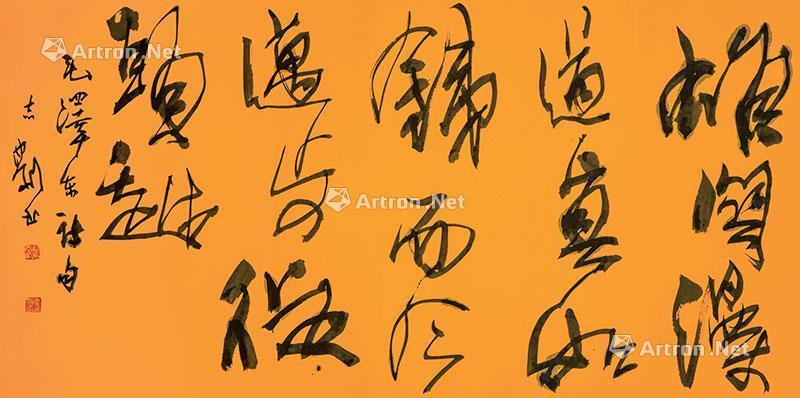 雄关漫
道真如
铁而今
迈步从
头越
毛泽东诗句
Artron.Net
Artron.Net
Artron.Net
Artron.Net
Artron.Net